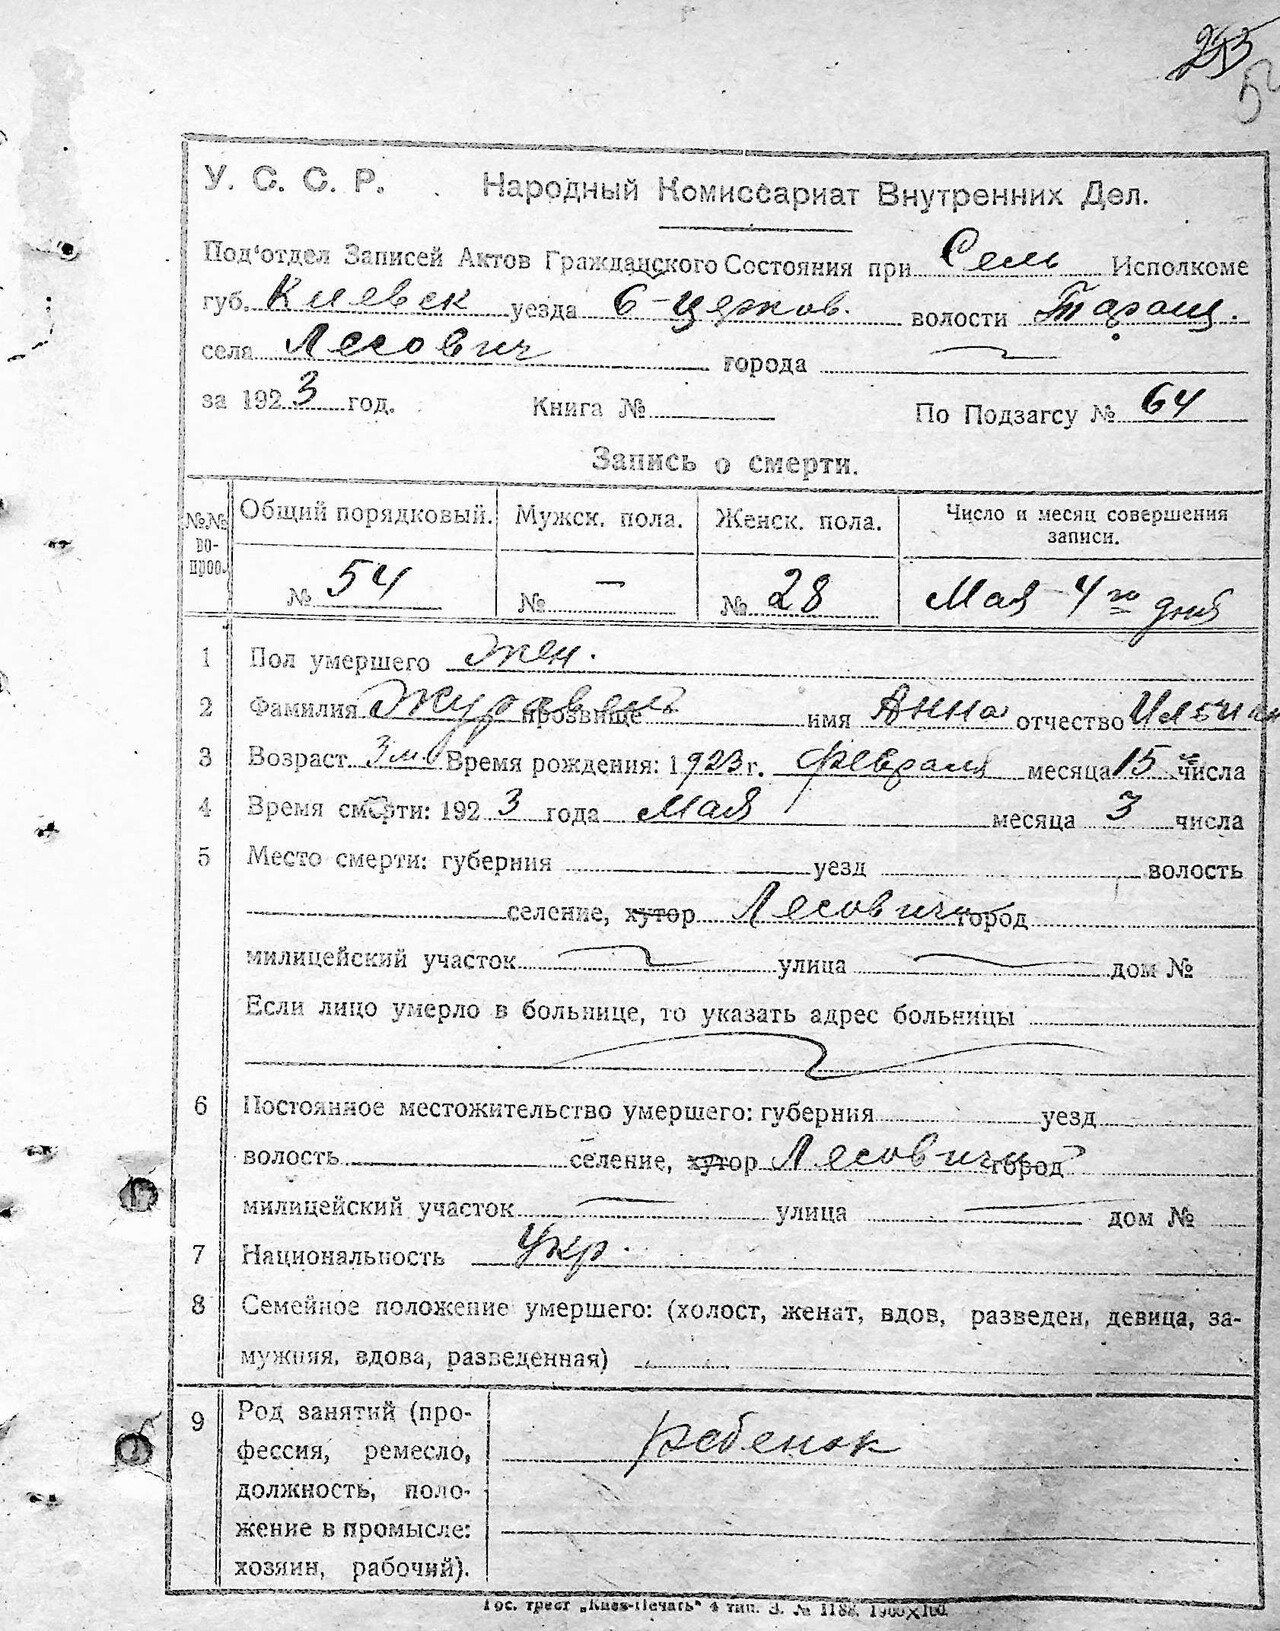 У. С. С. Р. Народный Комиссариат Внутренних Дел.
Под'отдел Записей Актов Гражданского Состояния при Сель Исполкоме
губ. Киевск уезда Б-Церков. волости Таращ.
села Лесович города
за 1923 год. Книга № По Подзагсу № 64
Запись о смерти.
№№ вопрос. Общий порядковый. Мужск. пола. Женск. пола. Число и месяц совершения записи.
№ 54 № — № 28 Мая 4го дня
1 Пол умершего Жен.
2 Фамилия прозвище имя Анна отчество
3 Возраст 3 м. Время рождения: 1923 г. февраля месяца 15 числа
4 Время смерти: 1923 года Мая месяца 3 числа
5 Место смерти: губерния уезд волость
селение, хутор Лесовичи город
милицейский участок улица дом №
Если лицо умерло в больнице, то указать адрес больницы
6 Постоянное местожительство умершего: губерния уезд
волость селение, хутор Лесовичи город
милицейский участок улица дом №
7 Национальность Укр.
8 Семейное положение умершего: (холост, женат, вдов, разведен, девица, за-
мужняя, вдова, разведенная)
9 Род занятий (про-
фессия, ремесло,
должность, поло-
жение в промысле:
хозяин, рабочий).
ребенок
Гос. трест „Киев-Печать" 4 тип. З. №